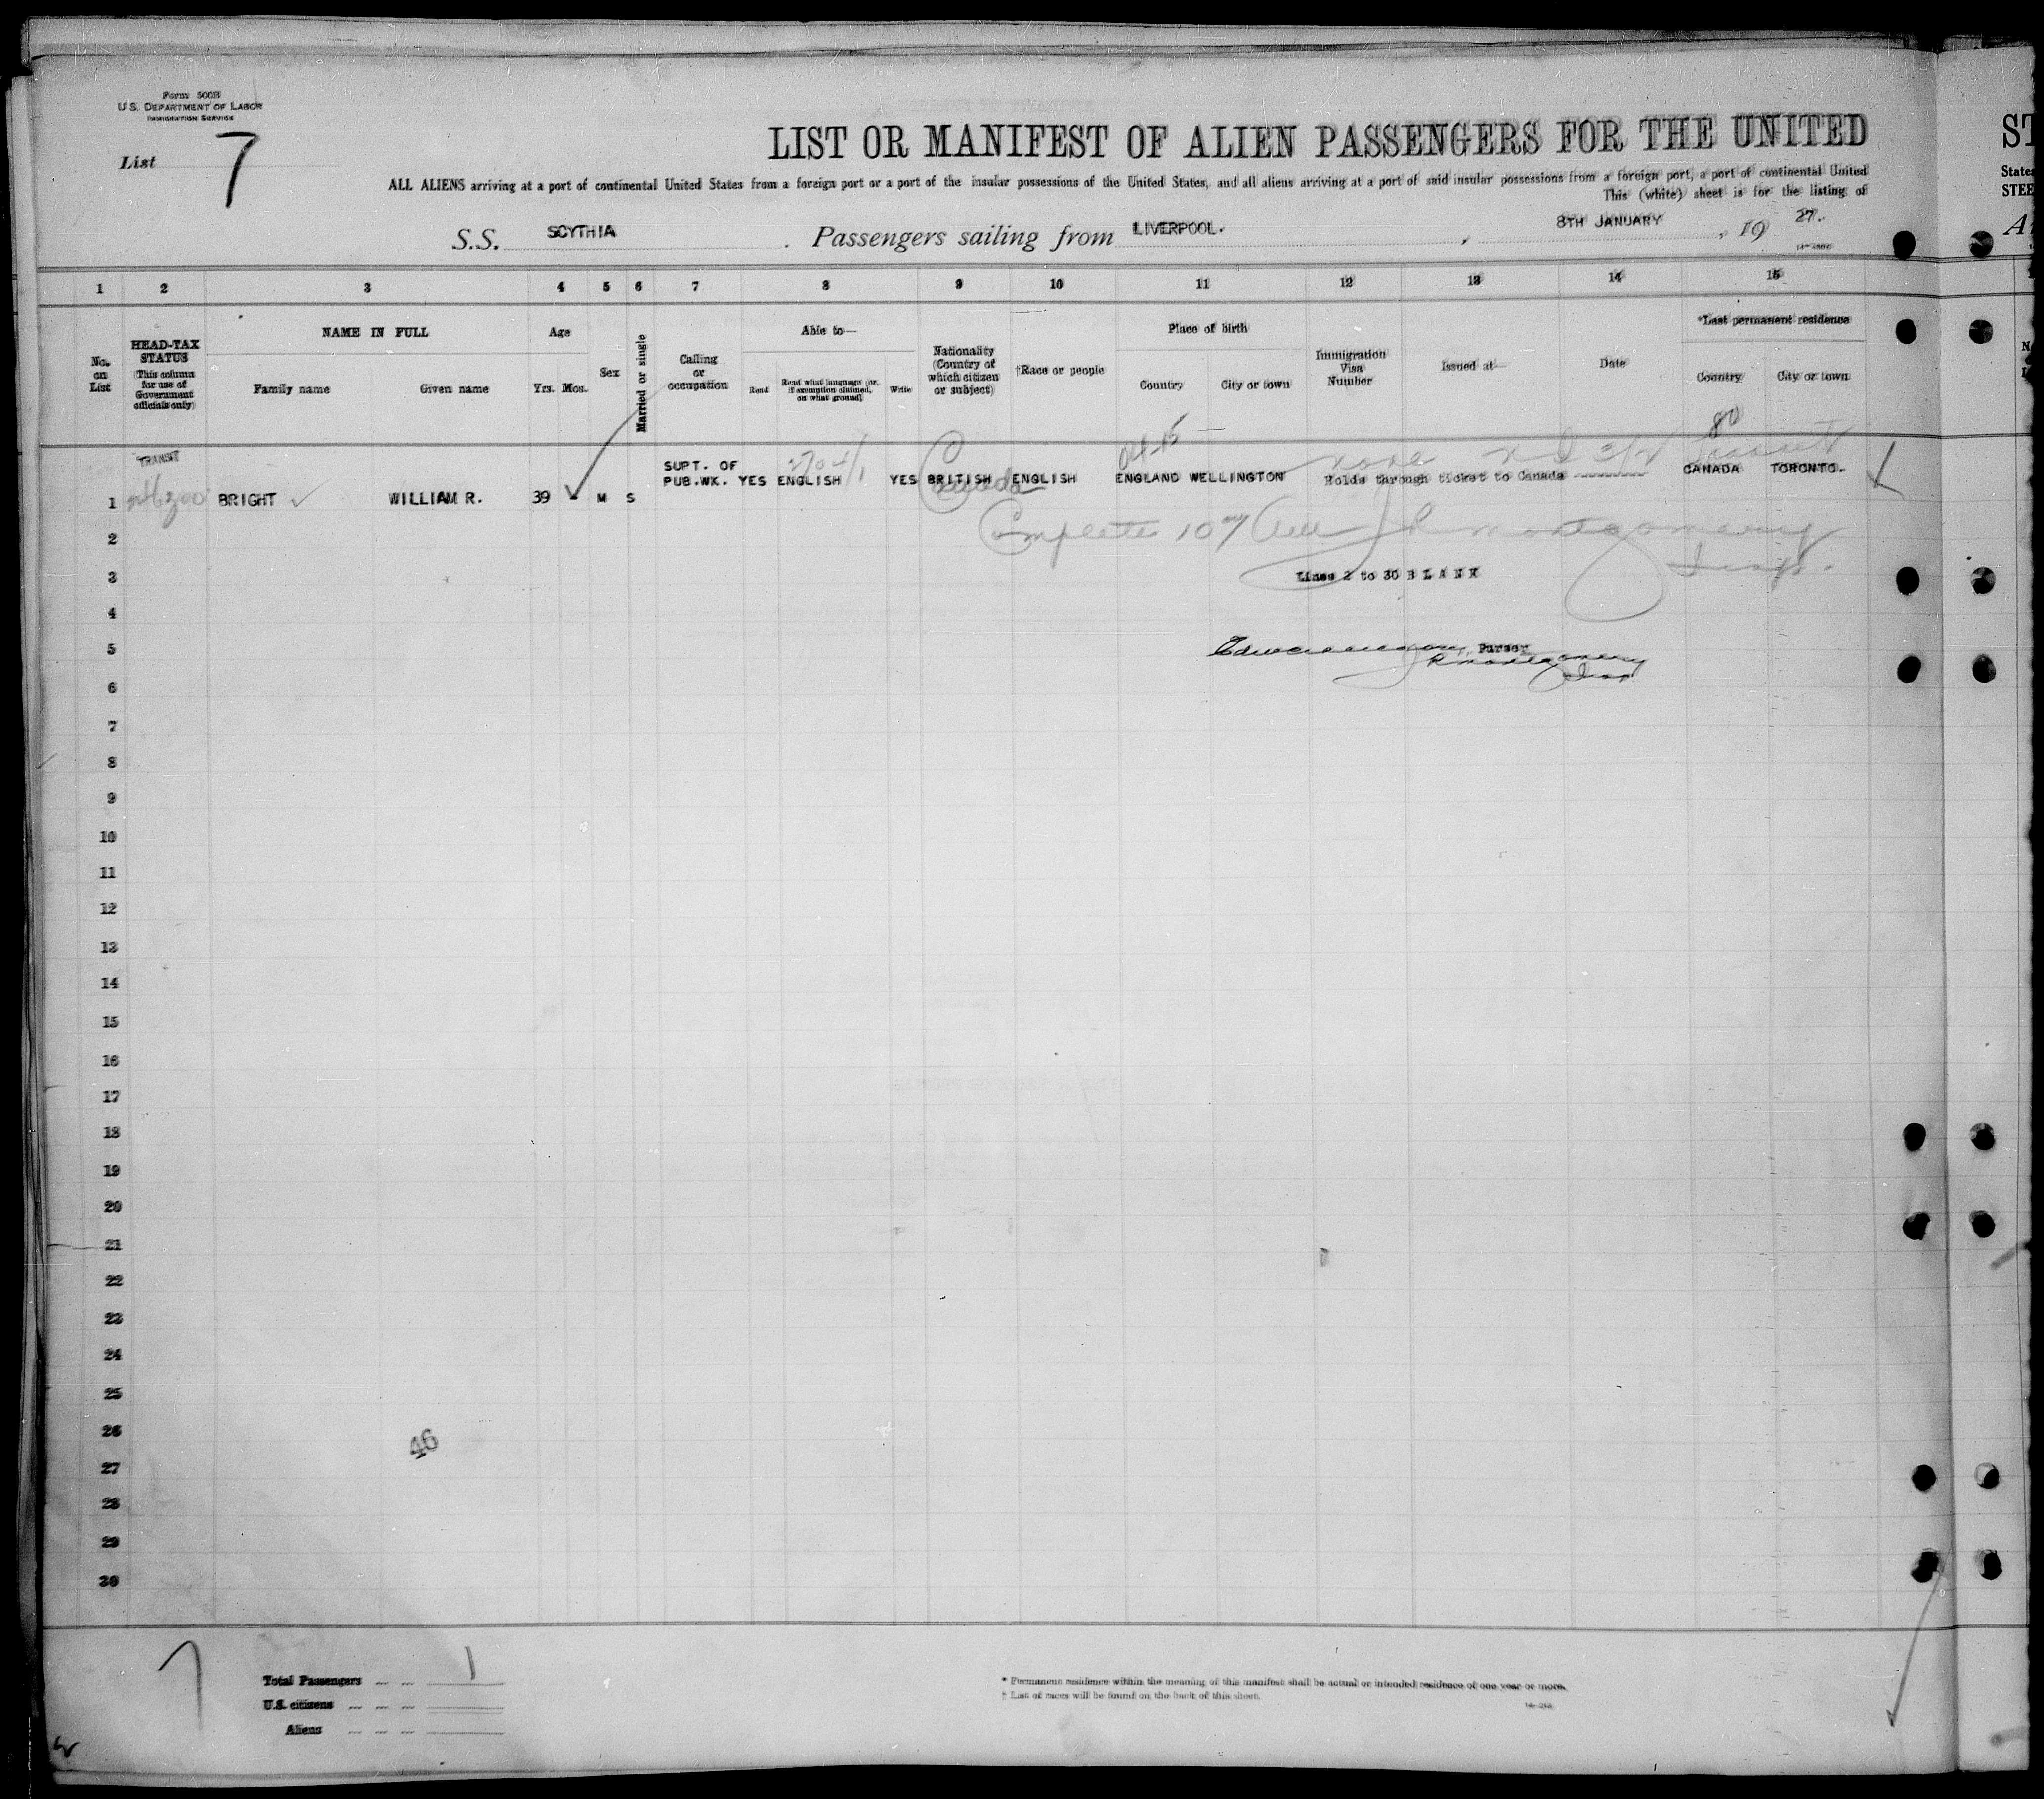 Form 500B
U.S. DEPARTMENT OF LABOR
IMMIGRATION SERVICE
List 7
LIST OR MANIFEST OF ALIEN PASSENGERS FOR THE UNITED
ST
ALL ALIENS arriving at a port of continental United States from a foreign port or a port of the insular possessions of the United States, and all aliens arriving at a port of said insular possessions from a foreign port, a port of continental United
States
This (white) sheet is for the listing of
STEE
S.S. SCYTHIA. Passengers sailing from LIVERPOOL. , 8TH JANUARY, 19 27.
1 2 3 4 5 6 7 8 9 10 11 12 13 14 15
No. on List
HEAD-TAX STATUS (This column for use of Government officials only)
NAME IN FULL
Family name Given name
Age
Yrs. Mos.
Sex
Married or single
Calling or occupation
Able to—
Read Read what language (or, if exemption claimed, on what ground) Write
Nationality (Country of which citizen or subject)
†Race or people
Place of birth
Country City or town
Immigration Visa Number
Issued at—
Date
*Last permanent residence
Country City or town
80
TRANSIT
1 BRIGHT WILLIAM R. 39 - M S SUPT. OF PUB.WK. YES ENGLISH YES BRITISH ENGLISH ENGLAND WELLINGTON Holds through ticket to Canada CANADA TORONTO.
Canada
none
Transit
2
Complete 107 Montgomery
Insp.
3
Lines 2 to 30 BLANK
4
5
Purser
Montgomery
Insp
6
7
8
9
10
11
12
13
14
15
16
17
18
19
20
21
22
23
24
25
26
46
27
28
29
30
7
Total Passengers 1
U.S. citizens
Aliens
* Permanent residence within the meaning of this manifest shall be actual or intended residence of one year or more.
† List of races will be found on the back of this sheet.